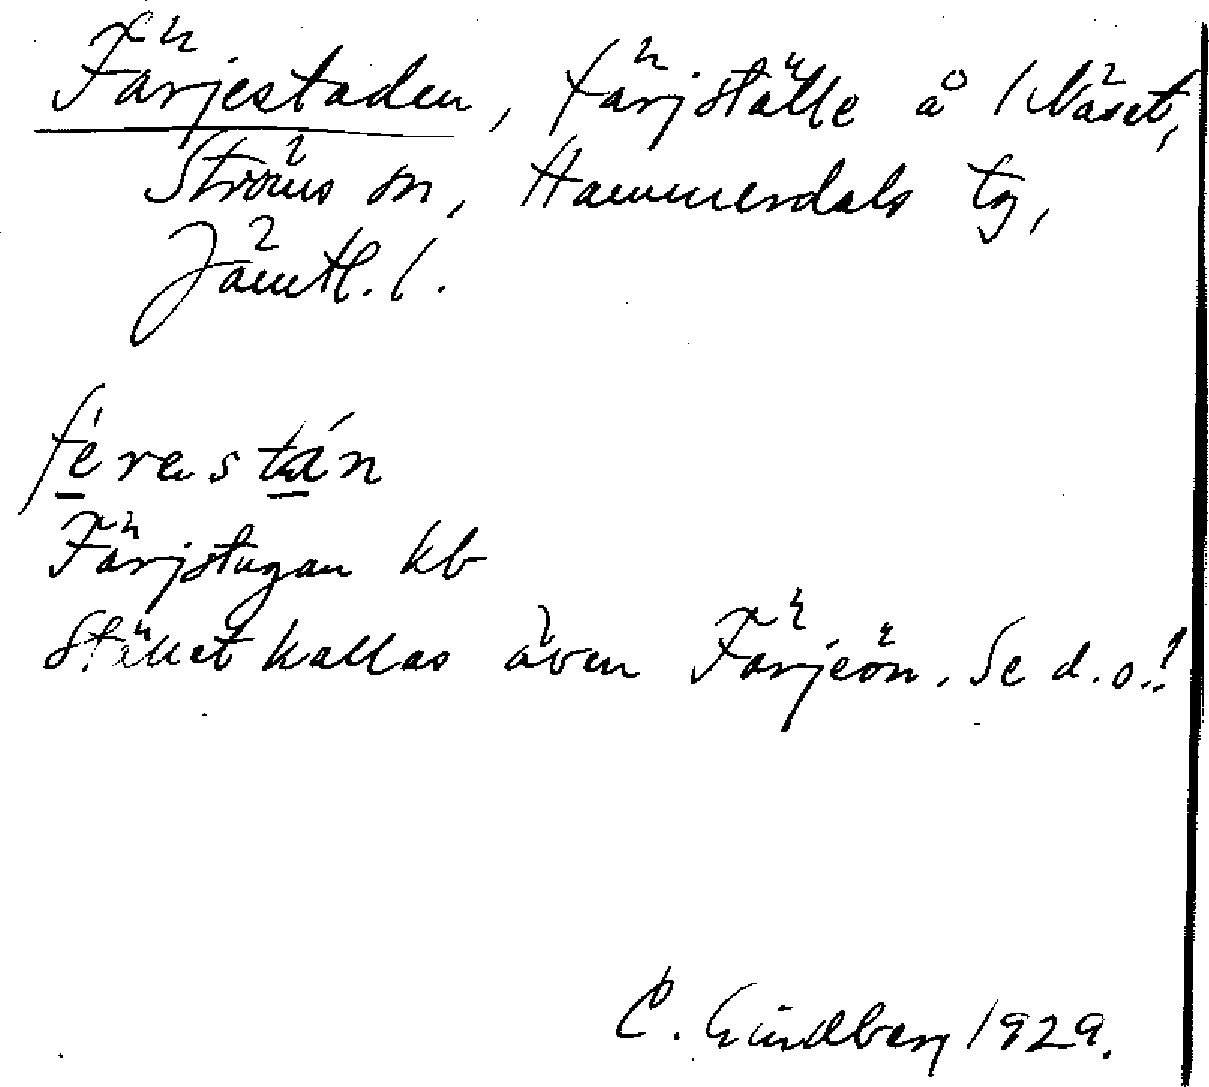 Färjestaden, färjställe å 1 Näset,
Ströms sn, Hammerdals tg,
Jämtl. l.
férastán
Färjstugan kb
Stället kallas även Färjeön. Se d.o.!
C. Lindberg 1929.